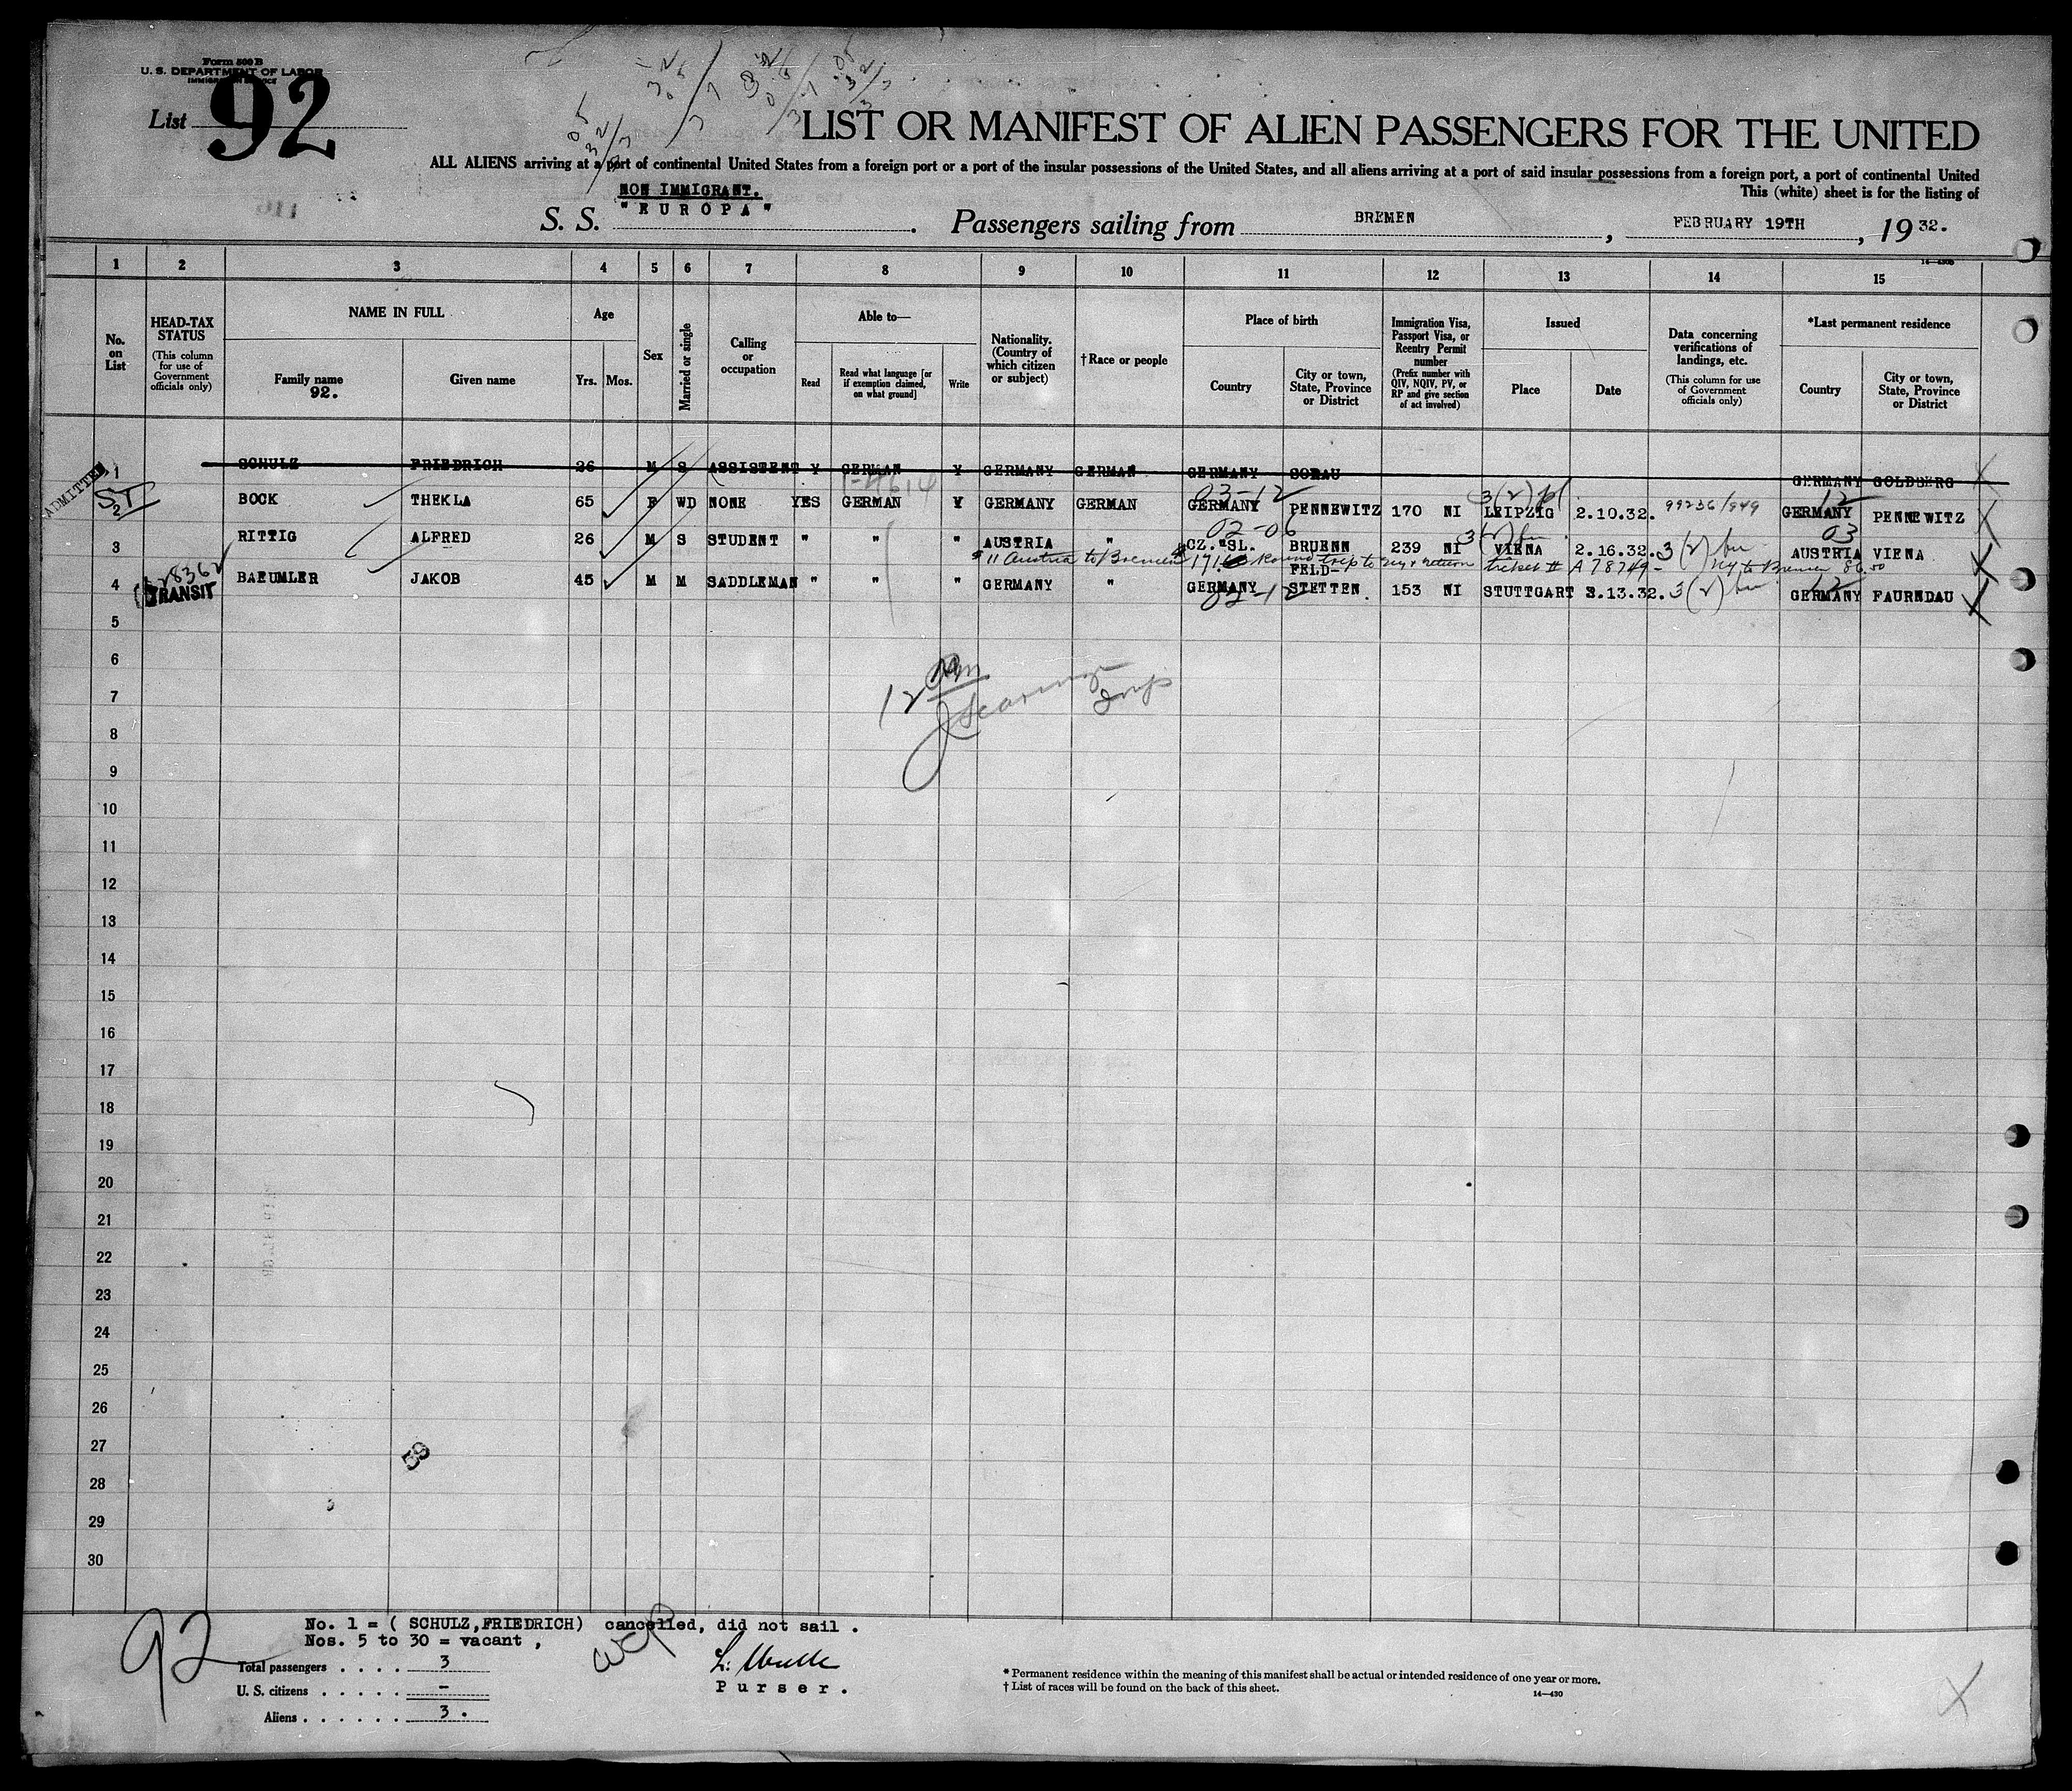 Form 500 B
U. S. DEPARTMENT OF LABOR
IMMIGRATION SERVICE
List 92
LIST OR MANIFEST OF ALIEN PASSENGERS FOR THE UNITED
ALL ALIENS arriving at a port of continental United States from a foreign port or a port of the insular possessions of the United States, and all aliens arriving at a port of said insular possessions from a foreign port, a port of continental United
This (white) sheet is for the listing of
NON IMMIGRANT.
S. S. "EUROPA". Passengers sailing from BREMEN, FEBRUARY 19TH, 1932.
1 2 3 4 5 6 7 8 9 10 11 12 13 14 15
No. on List
HEAD-TAX STATUS
(This column for use of Government officials only)
NAME IN FULL
Family name
92.
Given name
Age
Yrs. Mos.
Sex
Married or single
Calling or occupation
Able to—
Read
Read what language [or if exemption claimed, on what ground]
Write
Nationality. (Country of which citizen or subject)
†Race or people
Place of birth
Country
City or town, State, Province or District
Immigration Visa, Passport Visa, or Reentry Permit number
(Prefix number with QIV, NQIV, PV, or RP and give section of act involved)
Issued
Place
Date
Data concerning verifications of landings, etc.
(This column for use of Government officials only)
*Last permanent residence
Country
City or town, State, Province or District
1 SCHULZ FRIEDRICH 26 M S ASSISTENT Y GERMAN Y GERMANY GERMAN GERMANY SORAU GERMANY GOLDBERG
ADMITTED
ST
03-12 3(2) 12
2 BOCK THEKLA 65 F WD NONE YES GERMAN Y GERMANY GERMAN GERMANY PENNEWITZ 170 NI LEIPZIG 2.10.32. 99236/949 GERMANY PENNEWITZ
02-06 3(2) 03
3 RITTIG ALFRED 26 M S STUDENT " " " AUSTRIA " CZ. SL. BRUENN 239 NI VIENA 2.16.32. 3(2) AUSTRIA VIENA
$11 Austria to Bremen $171 Round trip to Ny & return ticket # A 78749- Ny to Bremen 86.00
28362
TRANSIT
4 BAEUMLER JAKOB 45 M M SADDLEMAN " " " GERMANY " GERMANY FELD-STETTEN. 153 NI STUTTGART 2.13.32. 3(2) GERMANY FAURNDAU
02-12 12
5
6
7
8
9
10
11
12
13
14
15
16
17
18
19
20
21
22
23
24
25
26
27
28
29
30
12
59
92
No. 1 = ( SCHULZ,FRIEDRICH) cancelled, did not sail .
Nos. 5 to 30 = vacant ,
Total passengers . . . . 3
U. S. citizens . . . . . —
Aliens . . . . . . 3 .
Purser.
* Permanent residence within the meaning of this manifest shall be actual or intended residence of one year or more.
† List of races will be found on the back of this sheet.
14—430